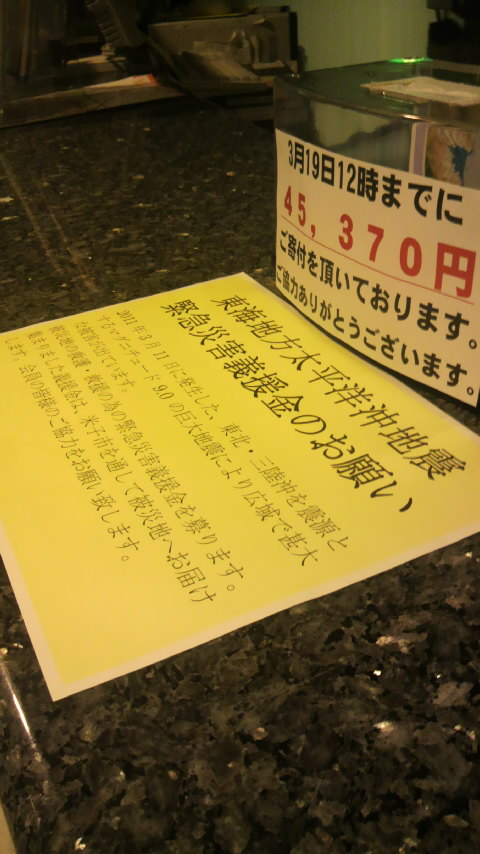 3月19日12時までに
45,370円
ご寄付を頂いております。
ご協力ありがとうございます。
東海地方太平洋沖地震
緊急災害義援金のお願い
2011年3月11日に発生した、東北・三陸沖を震源と
するマグニチュード9.0の巨大地震により広域で甚大
な被害が出ています。
被災地の救護・救援の為の緊急災害義援金を募ります。
集まりました義援金は、米子市を通して被災地へお届け
します。会員の皆様のご協力をお願い致します。